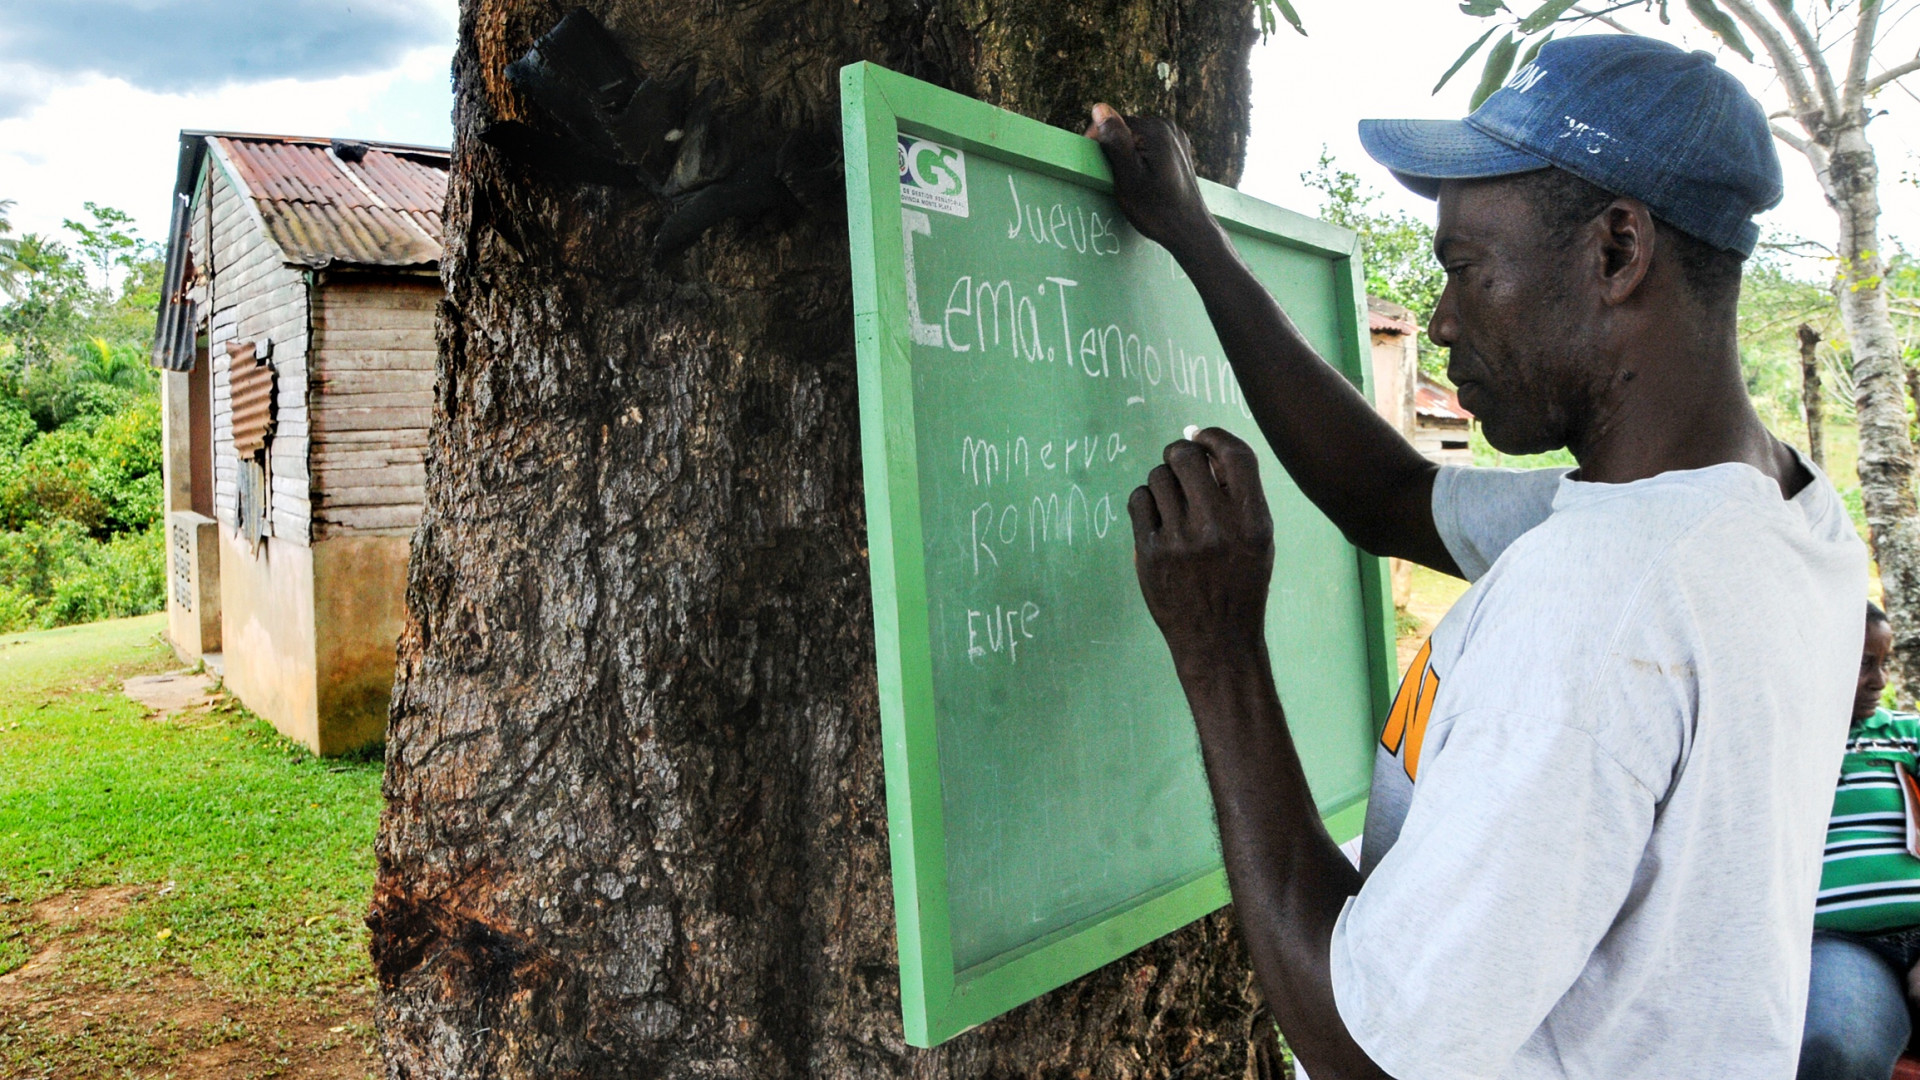 GS
DE GESTION SENATORIAL
OVINCIA MONTE PLATA
Jueves
Lema: Tengo un
minerva
Romna
EUFe
ON
N